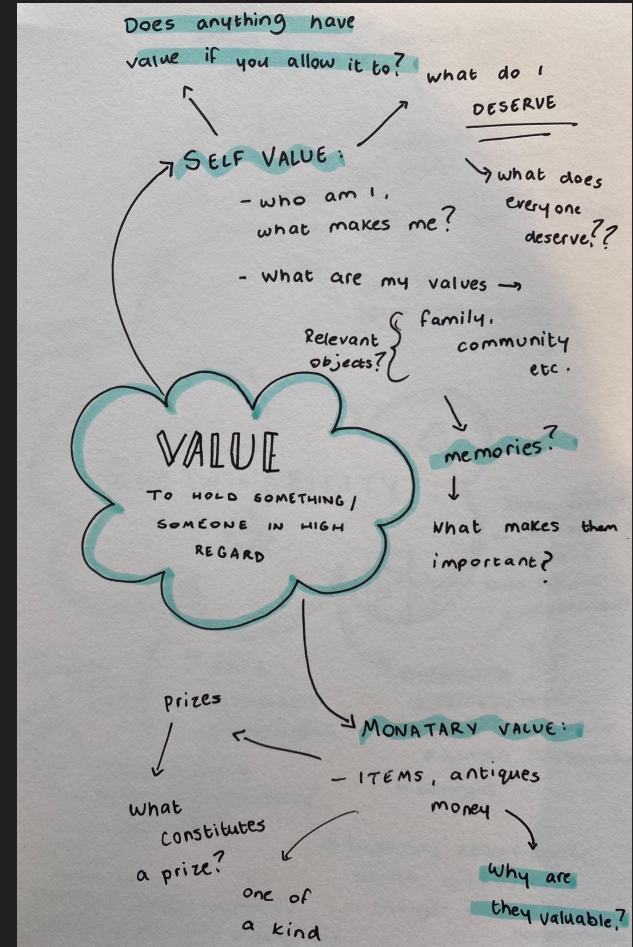 Does anything have
value if you allow it to?
what do I
DESERVE
what does
everyone
deserve??
SELF VALUE:
- who am I,
what makes me?
- what are my values →
Relevant
objects?
family,
community
etc.
memories?
what makes them
important?
VALUE
TO HOLD SOMETHING/
SOMEONE IN HIGH
REGARD
MONATARY VALUE:
- ITEMS, antiques
money
prizes
what
constitutes
a prize?
one of
a kind
Why are
they valuable?